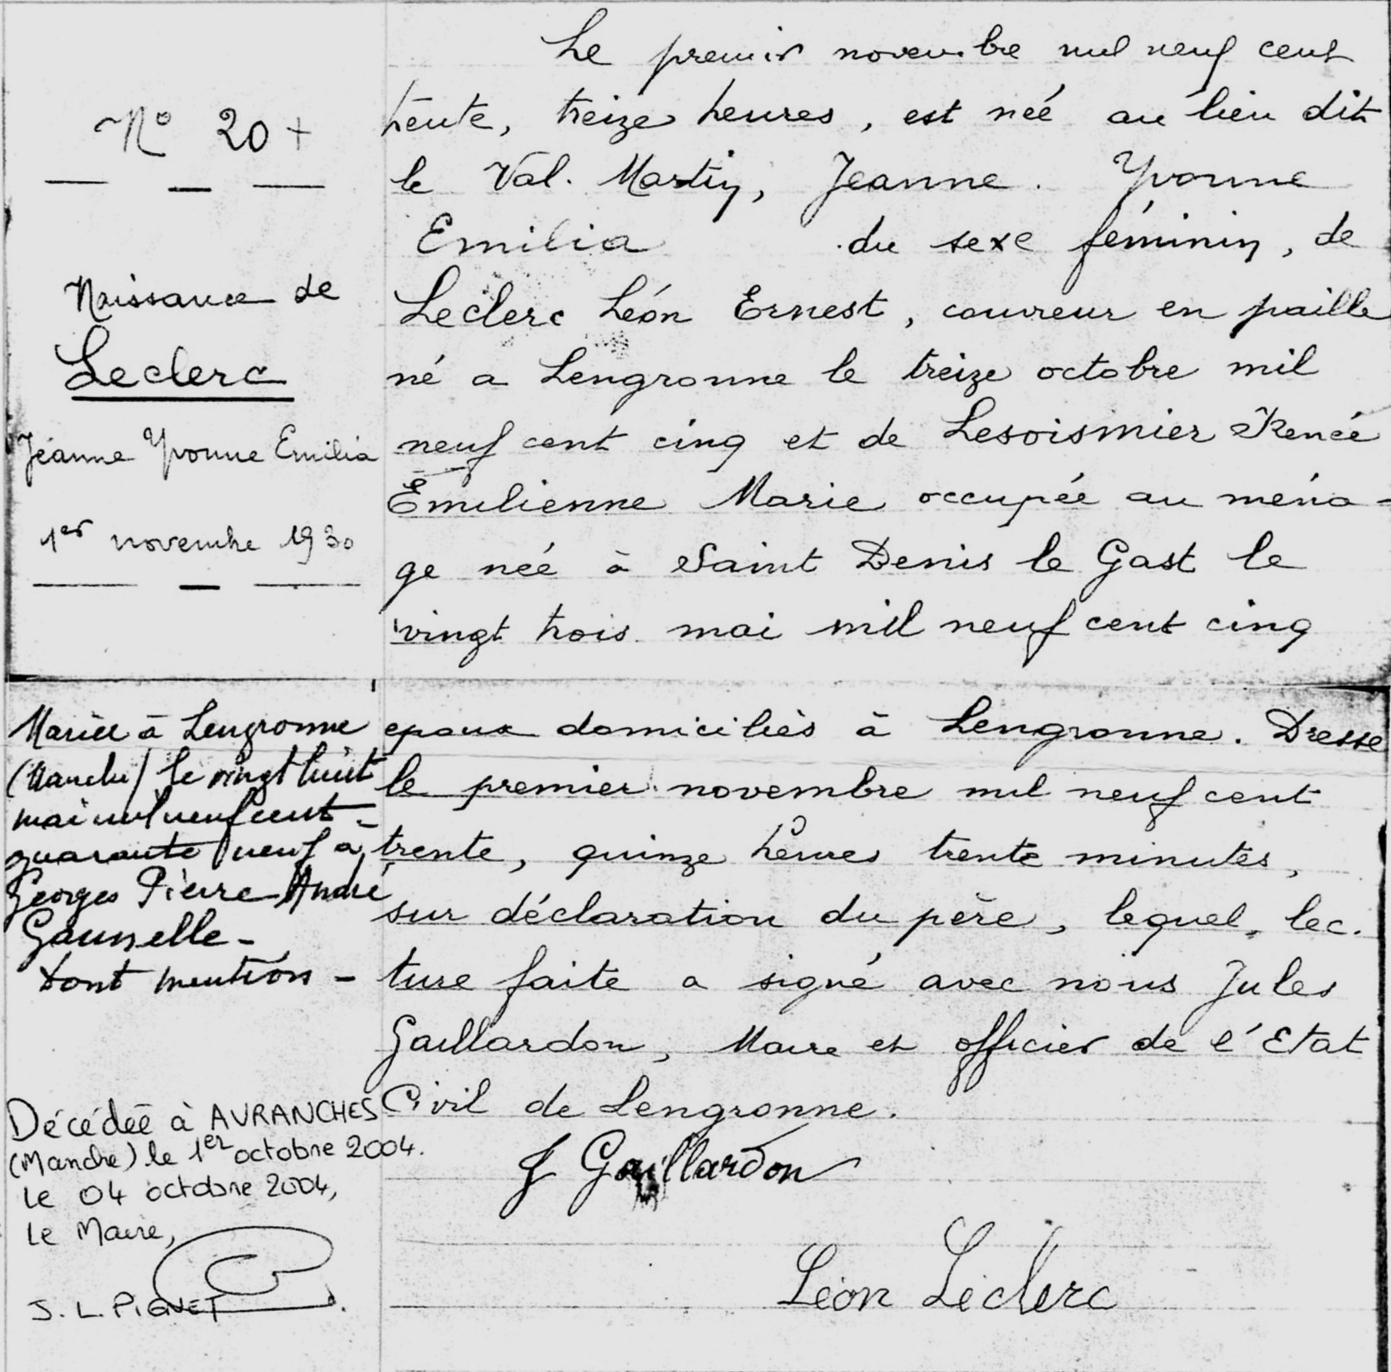 N° 20 +
Naissance de
Leclerc
Jeanne Yvonne Emilia
1er novembre 1930
Le premier novembre mil neuf cent
trente, treize heures, est née au lieu dit
le Val. Martin, Jeanne. Yvonne
Emilia du sexe féminin, de
Leclerc Léon Ernest, couvreur en paille
né a Lengronne le treize octobre mil
neuf cent cinq et de Lesoismier Renée
Emilienne Marie occupée au ména-
ge née à Saint Denis le Gast le
vingt trois mai mil neuf cent cinq
epoux domiciliés à Lengronne. Dressé
le premier novembre mil neuf cent
trente, quinze heures trente minutes,
sur déclaration du père, lequel, lec.
ture faite a signé avec nous Jules
Gaillardon, Maire et officier de l'Etat
Civil de Lengronne.
J Gaillardon
Léon Leclerc
Mariée à Lengronne
(Manche) le vingt huit
mai mil neuf cent -
quarante neuf à
Georges Pierre André
Gaunelle -
Dont mention -
Décédée à AVRANCHES
(Manche) le 1er octobre 2004.
Le 04 octobre 2004,
Le Maire,
J. L. PIGNET